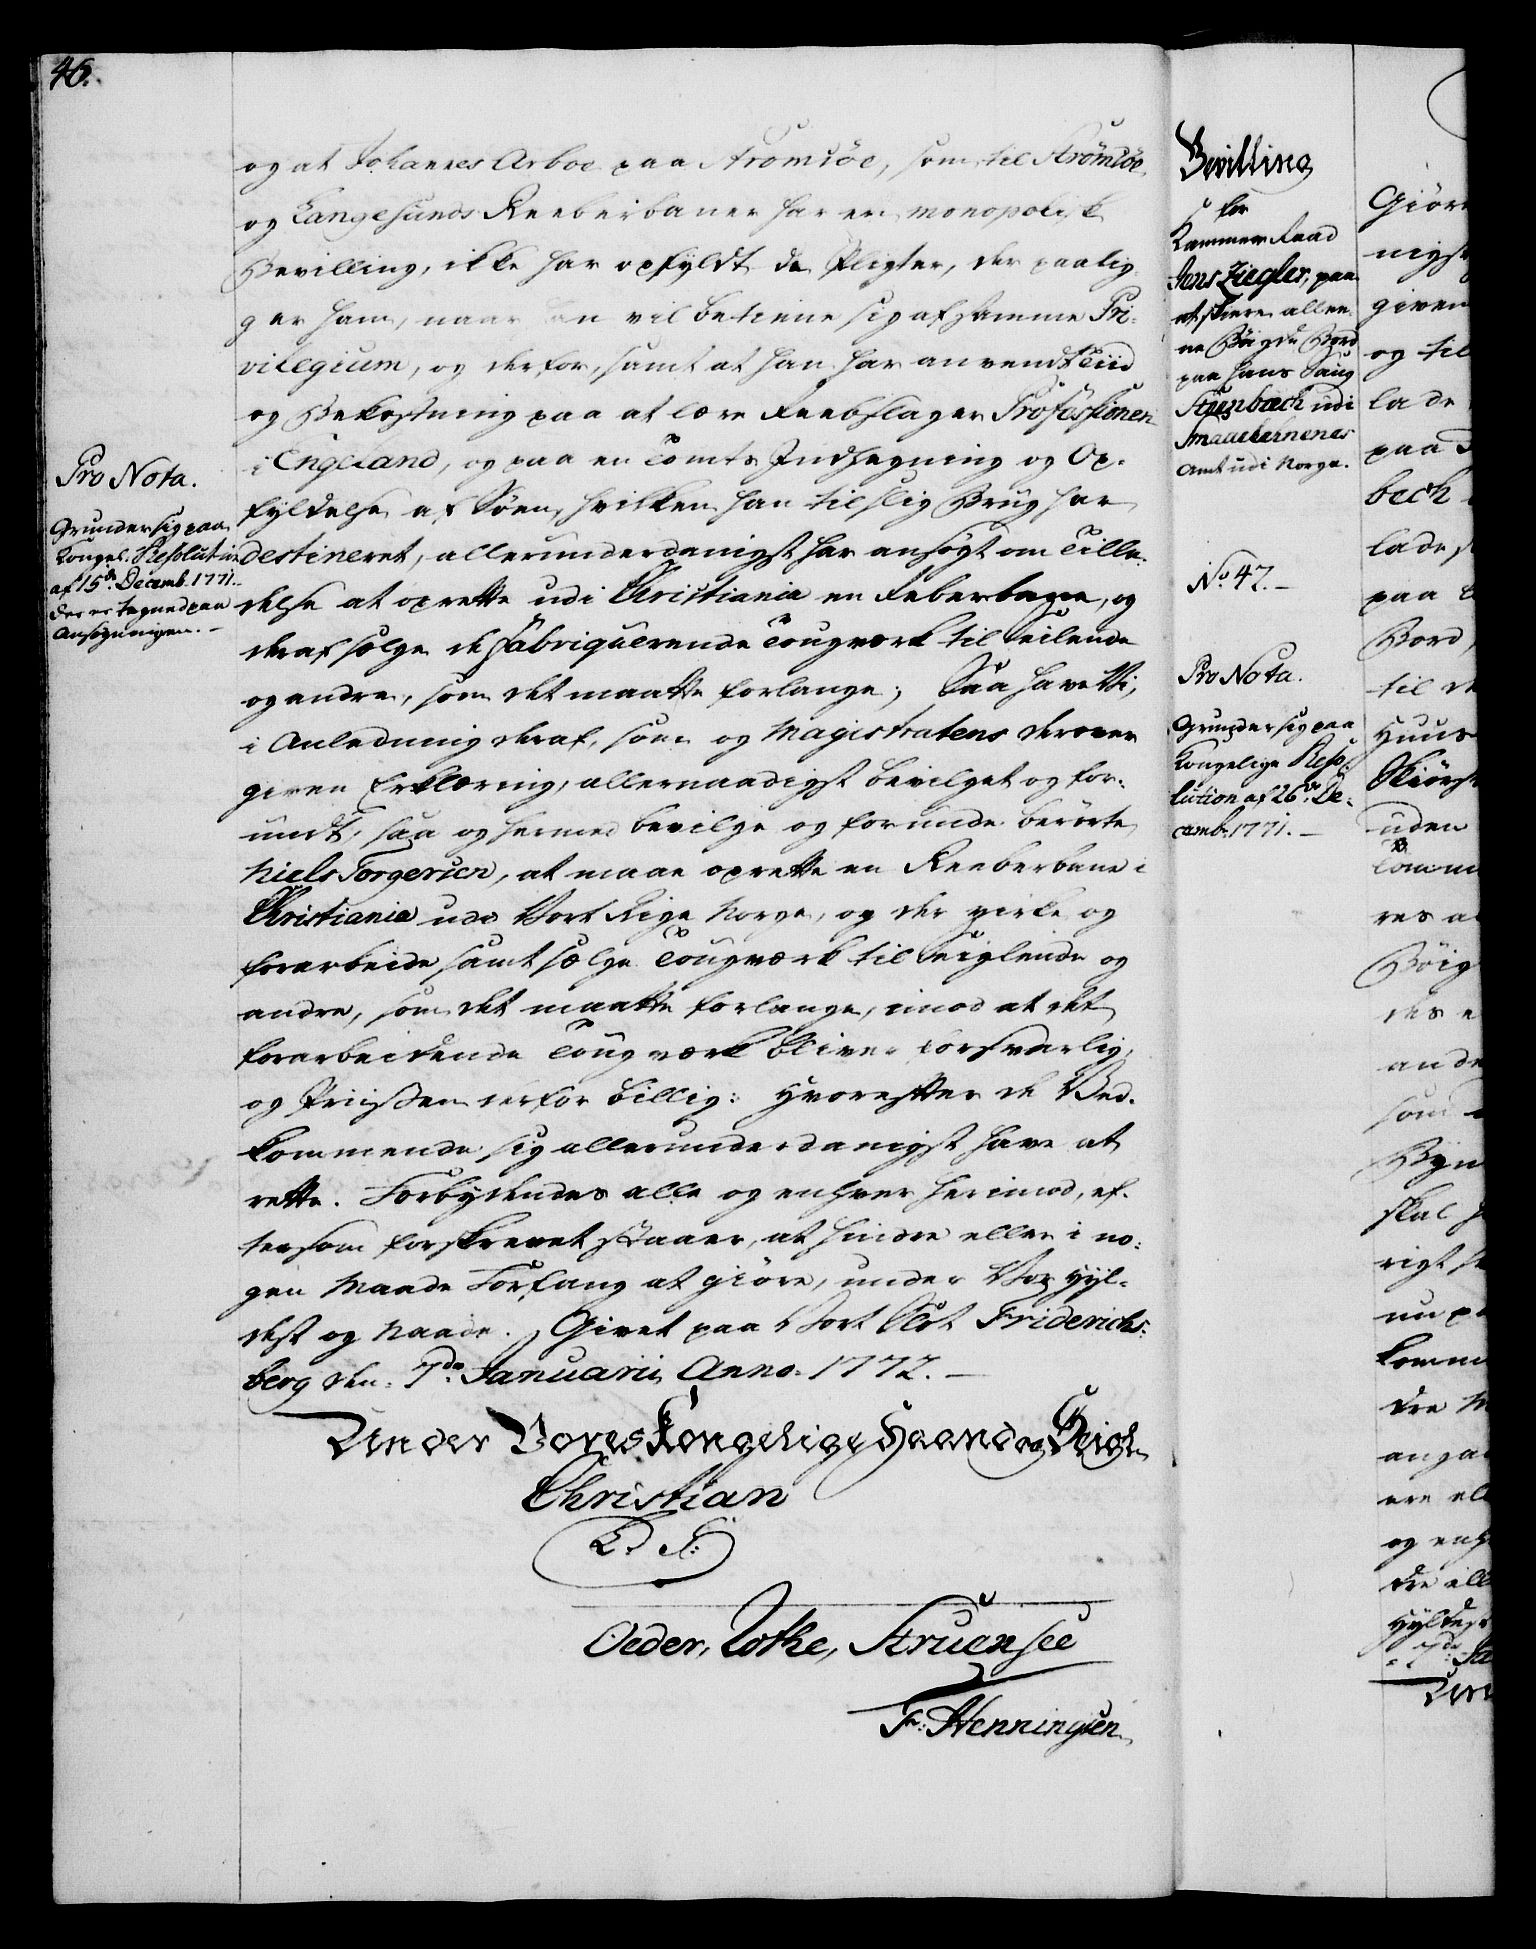 46.
og at Johannes Arboe paa Strømsöe, som til Strömsöe
og Langesunds Reeberbaner har en monopolisk
Bevilling, ikke har opfyldt de Pligter, der paalig-
ger ham, naar han vil betiene sig af samme Pri-
vilegium, og derfor, samt at han har anvendt Tiid
og Bekostning paa at lære Reebslager Profession
i Engeland, og paa en Tomts Indhegning og Op-
fyldelse af Söen, hvilken han til slig Brug har
destineret, allerunderdanigst har ansögt om Tilla-
delse at oprette udi Christiania en Reberbane, og
deraf sælge det fabriquerende Tougværk til Seilende
og andre, som det maatte forlange; Saa have Vi,
i Anledning deraf, som og Magistratens derover
given Erklæring, allernaadigst bevilget og for-
undt, saa og hermed bevilge og forunde berörte
Niels Torgersen, at maae oprette en Reeberbane i
Christiania udi Vort Rige Norge, og der virke og
forarbeide samt sælge Tougværk til Seiglende og
andre, som det maatte forlange, imod at det
forarbeidende Tougværk bliver forsvarlig,
og Priissen derfor billig: Hvorefter de Ved-
kommende sig allerunderdanigst have at
rette. Forbydendes alle og enhver herimod, ef-
tersom forskrevet staaer, at hindre eller i no-
gen Maade Forfang at giöre, under Vor Hyl-
dest og Naade. Givet paa Vort Slot Friderichs-
berg den 7de Januarii Anno 1772.
Under Vores Kongelige Haand og Seigl.
Christian
L. S.
Oeder, Zothe, Struensee
F: Henningsen
Pro Nota.
Grunder sig paa
Kongel. Resolution
af 15de Decemb. 1771.
der er tegned paa
Ansögningen.
Bevilling
for
Kammer Raad
Jens Ziegler, paa
at skiere allee-
ne Bøigde Bord
paa hans Saug
Steenbech udi
Smaalehnenes
Amt udi Norge.
No 47.
Pro Nota.
Grunder sig paa
Kongelige Reso-
lution af 26de De-
cemb. 1771.
Giör
nigst
given
og til
lade
paa
bech
lade
paa
Bord,
til de
Huus
uden
res
Böig
des
ande
som
skal
rigt
komm
dre
angaa
ere
og enh
dre ell
Hyldest
7de
Und